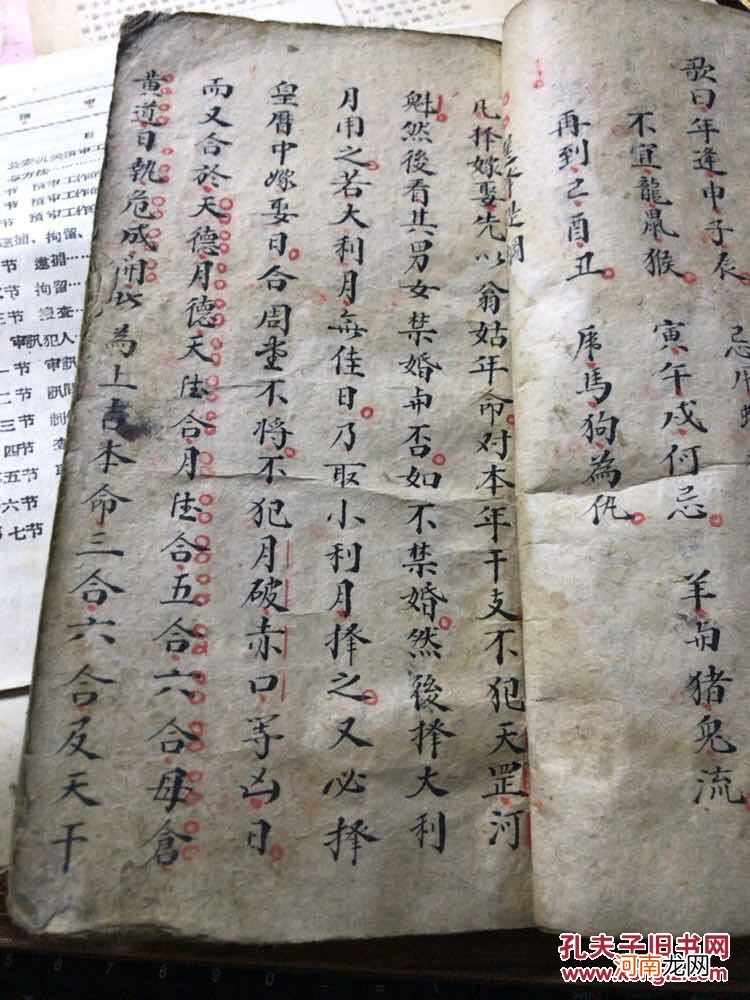 歌曰年逢申子辰
不宜龍鼠猴
寅午戌何忌
羊与猪兔流
再到己酉丑
虎馬狗為仇
凡择嫁娶先以翁姑年命对本年干支不犯天罡河
魁然後看其男女禁婚与否如不禁婚然後择大利
月用之若大利月無佳日乃取小利月择之又必择
皇曆中嫁娶日合周堂不将不犯月破赤口等凶日
而又合於天德月德天德合月德合五合六合母倉
黄道日执危成開此為上吉本命三合六合及天干
节 预审工作的
节 预审工作
逮捕、拘留、
节 逮捕
节 拘留
审讯犯人
四节
五节
六节
七节
孔夫子旧书网
河南龙网